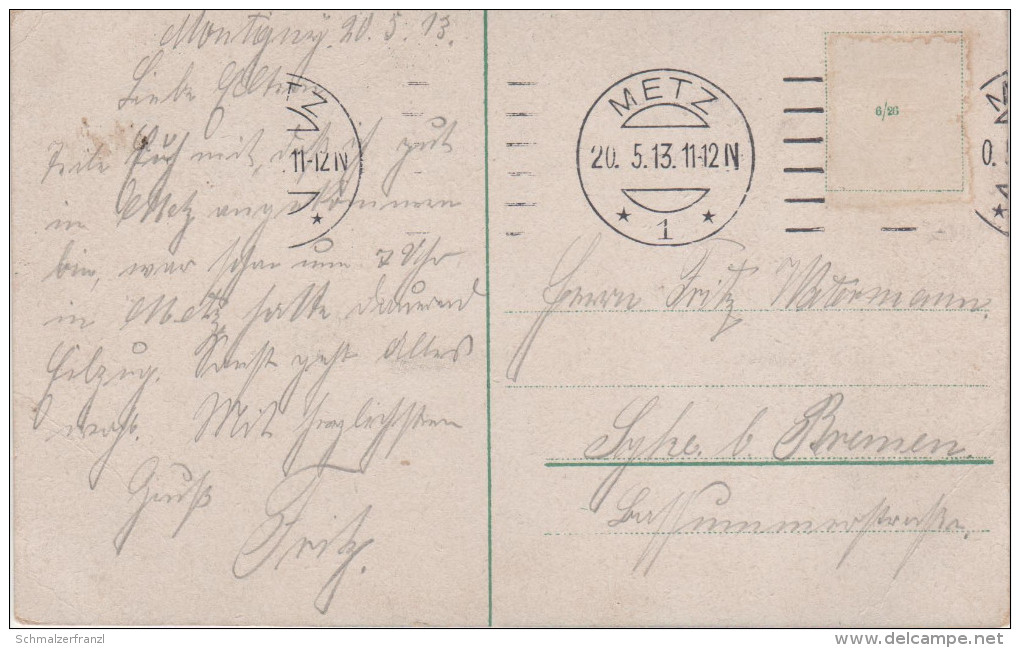 Montigny 20. 5. 13.
Liebe Eltern
Teile Euch mit, daß ich gut
in Metz angekommen
bin, war schon um 7 Uhr
in Metz, hatte dauernd
Eilzug. Sonst geht Alles
wohl. Mit herzlichsten
Gruß
Fritz.
11-12N
METZ
20. 5. 13. 11-12 N
* 1 *
6/26
Herrn Fritz Watermann.
Syke b. Bremen.
Bassummerstraße.
Schmalzerfranzl
www.delcampe.net